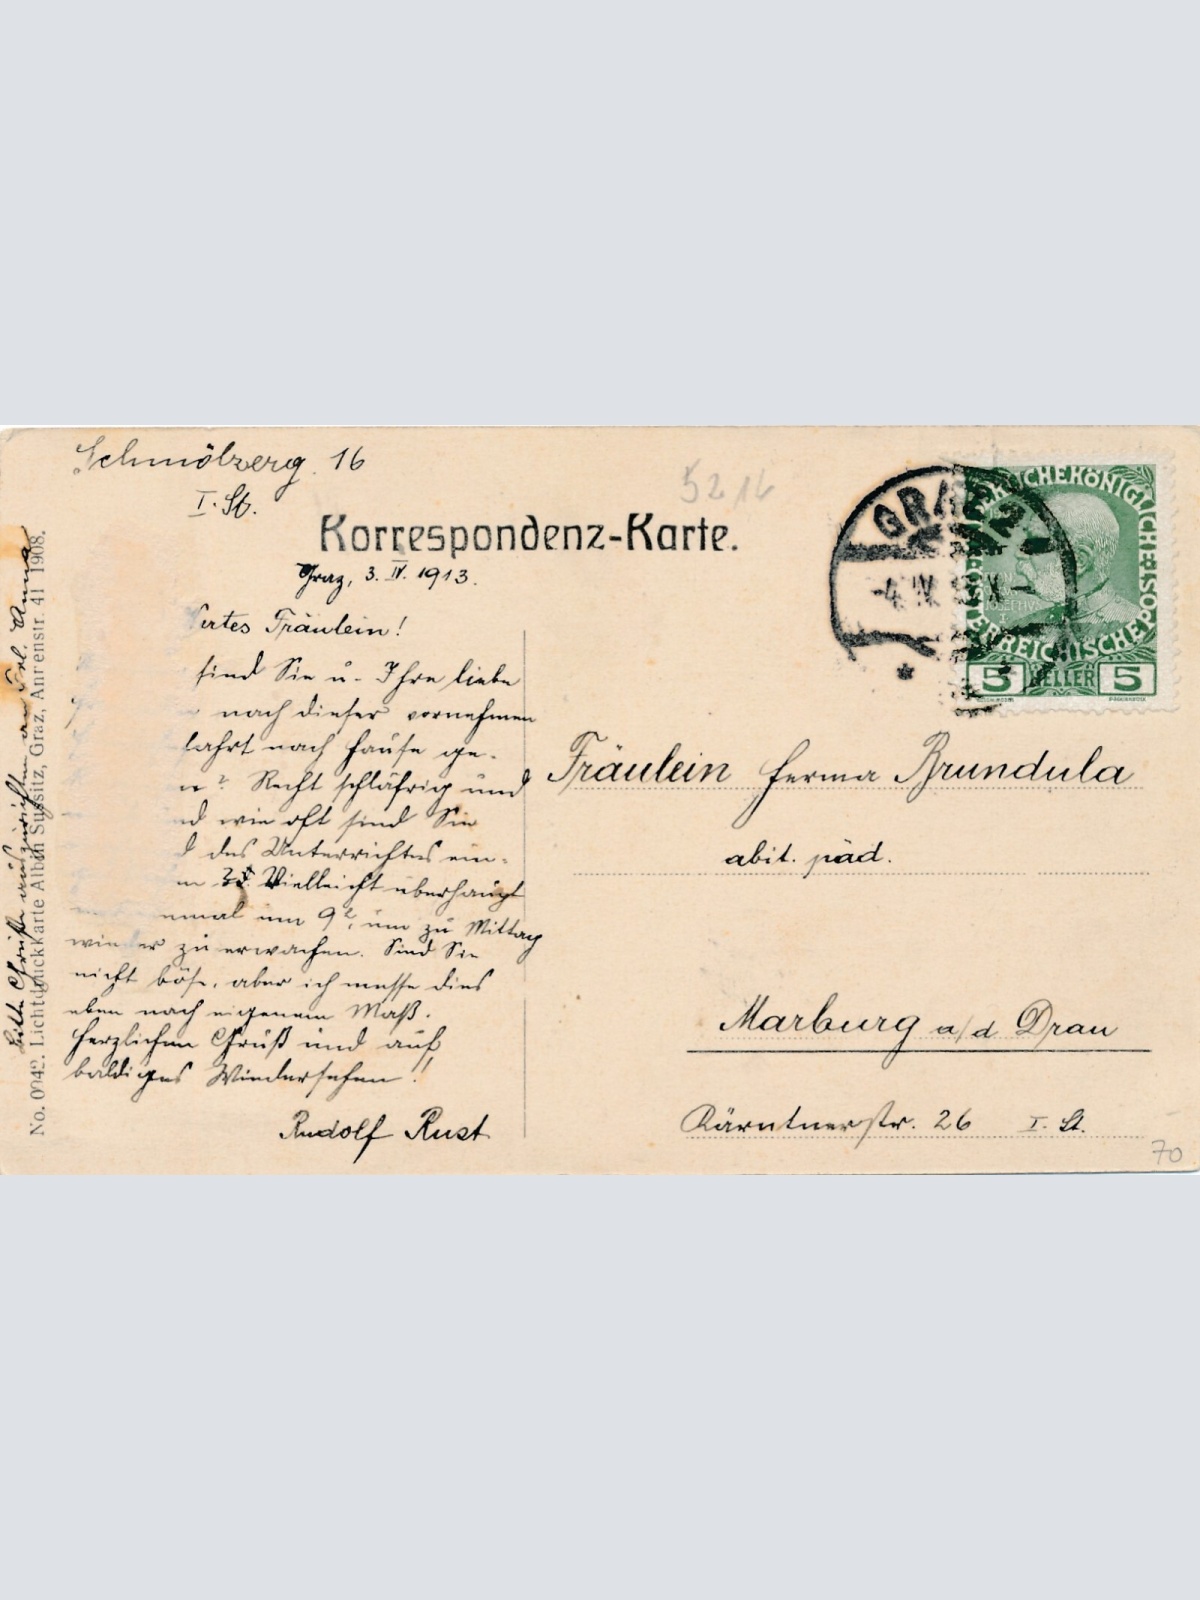 Schmölzerg. 16
I. St.
5216
Korrespondenz-Karte.
Graz, 3. IV. 1913.
ertes Fräulein!
sind Sie u. Ihre liebe
nach dieser vornehmen
fahrt nach Hause ge-
n? Recht schläfrig und
nd wie oft sind Sie
d des Unterrichtes ein-
en Vielleicht überhaupt
nmal um 9h, um zu Mittag
wieder zu erwachen. Sind Sie
nicht böse, aber ich messe dies
eben nach eigenem Maß.
Herzlichen Gruß und auf
baldiges Wiedersehen!
Rudolf Rust
Bitte Grüße auszurichten an Frl. Anna
No. 0942. Lichtdruckkarte Albin Sussitz, Graz, Annenstr. 41 1908.
GRAZ 2
4 IV 13 X
KAISERLICHE KÖNIGLICHE ÖSTERREICHISCHE POST
5 HELLER 5
Fräulein Herma Brundula
abit. päd.
Marburg a/d Drau
Kärntnerstr. 26 I. St.
70